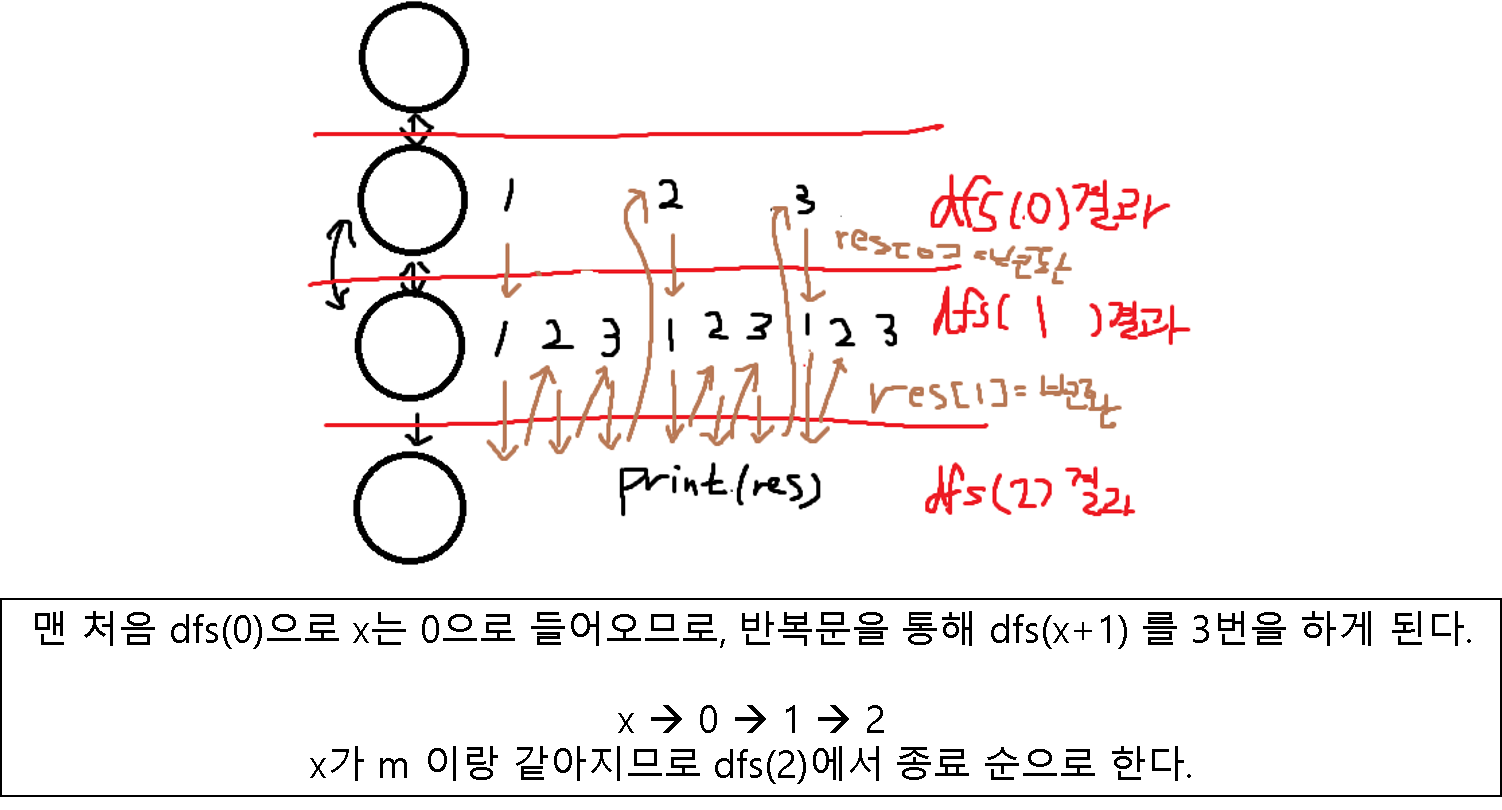 1 2 3
dfs(0)결과
res[0]=부분환
1 2 3 1 2 3 1 2 3
dfs( 1 )결과
res[1]=
print(res)
dfs(2)결과
맨 처음 dfs(0)으로 x는 0으로 들어오므로, 반복문을 통해 dfs(x+1) 를 3번을 하게 된다.
x → 0 → 1 → 2
x가 m 이랑 같아지므로 dfs(2)에서 종료 순으로 한다.